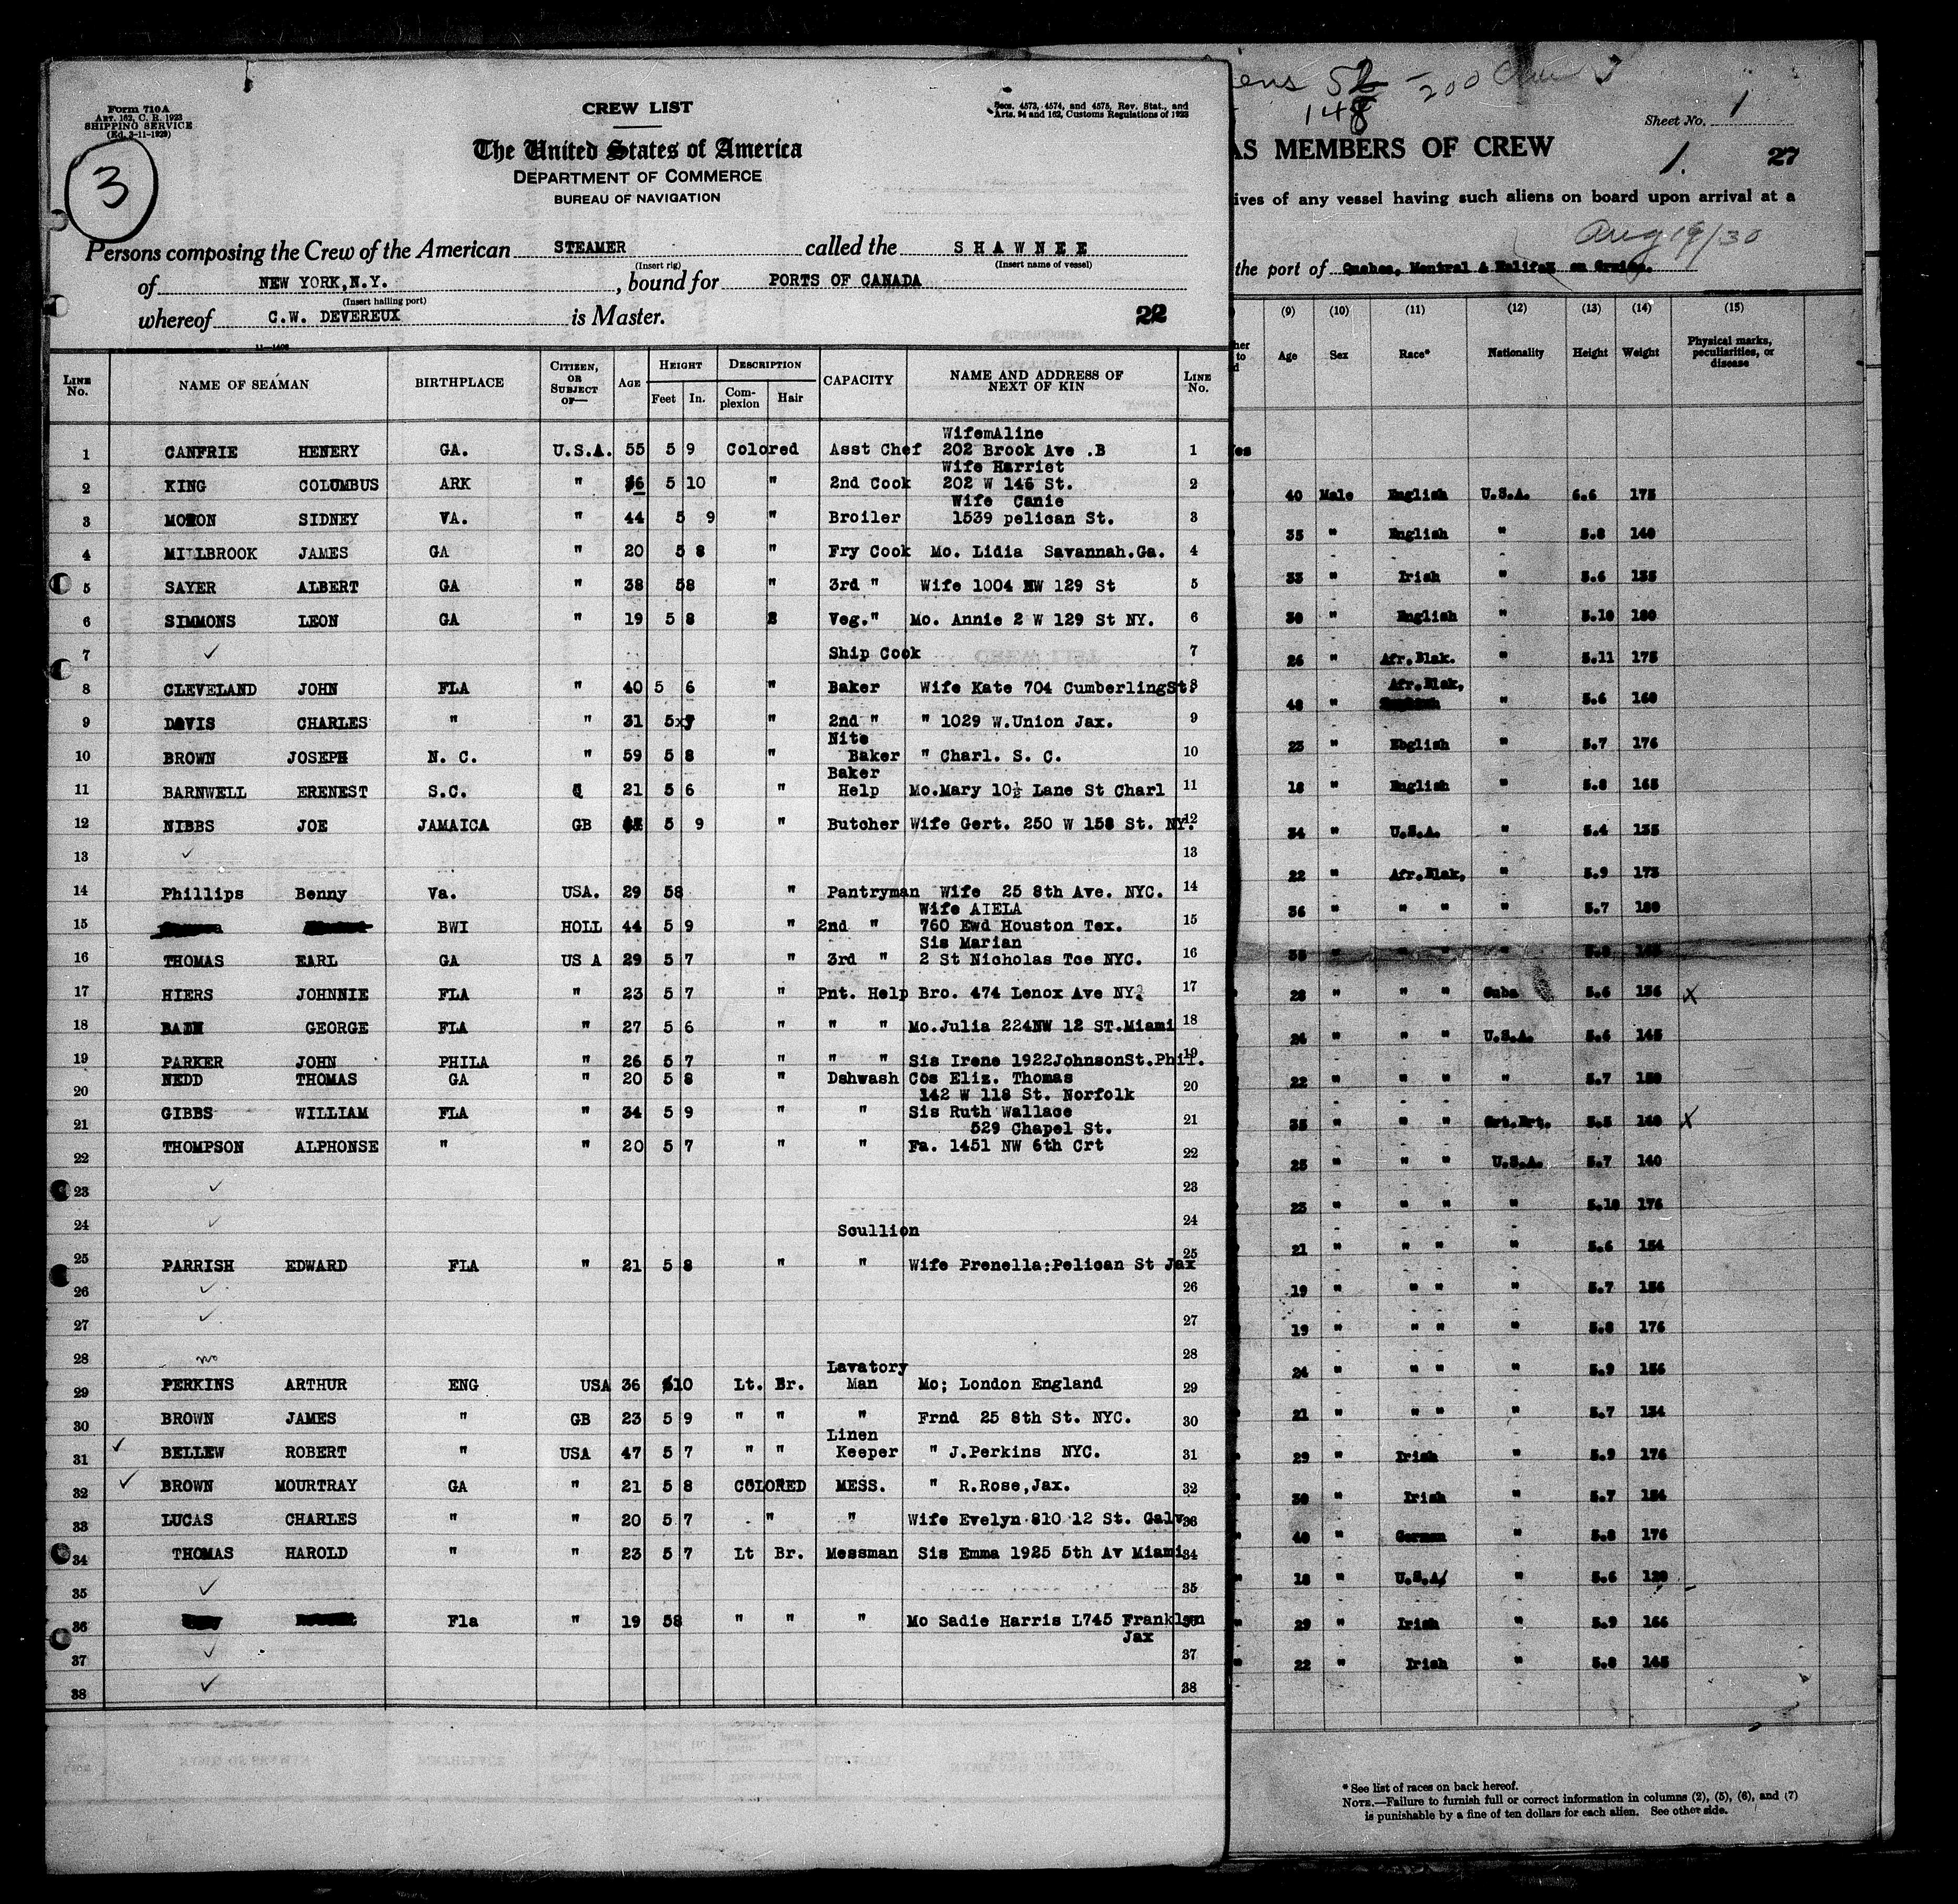 Form 710A
Art. 162, C. R. 1923
SHIPPING SERVICE
(Ed. 3-11-1929)
3
CREW LIST
Secs. 4573, 4574, and 4575, Rev. Stat., and
Arts. 94 and 162, Customs Regulations of 1923
The United States of America
DEPARTMENT OF COMMERCE
BUREAU OF NAVIGATION
Persons composing the Crew of the American STEAMER called the SHAWNEE
(Insert rig) (Insert name of vessel)
of NEW YORK,N.Y. , bound for PORTS OF CANADA
(Insert hailing port)
whereof C.W. DEVEREUX is Master. 22
11-1408
LINE No. NAME OF SEAMAN BIRTHPLACE CITIZEN, OR SUBJECT OF— AGE HEIGHT Feet In. DESCRIPTION Complexion Hair CAPACITY NAME AND ADDRESS OF NEXT OF KIN LINE No.
WifemAline
1 CANFRIE HENERY GA. U.S.A. 55 5 9 Colored Asst Chef 202 Brook Ave .B 1
Wife Harriet
2 KING COLUMBUS ARK " 5 10 " 2nd Cook 202 W 146 St. 2
Wife Canie
3 MORON SIDNEY VA. " 44 5 9 " Broiler 1539 pelican St. 3
4 MILLBROOK JAMES GA " 20 5 8 " Fry Cook Mo. Lidia Savannah.Ga. 4
5 SAYER ALBERT GA " 38 58 " 3rd " Wife 1004 NW 129 St 5
6 SIMMONS LEON GA " 19 5 8 Veg." Mo. Annie 2 W 129 St NY. 6
7 Ship Cook 7
8 CLEVELAND JOHN FLA " 40 5 6 " Baker Wife Kate 704 CumberlingSt. 8
9 DAVIS CHARLES " " 31 5x7 " 2nd " " 1029 W.Union Jax. 9
Nite
10 BROWN JOSEPH N. C. " 59 5 8 " Baker " Charl. S. C. 10
Baker
11 BARNWELL ERENEST S.C. 21 5 6 " Help Mo.Mary 10½ Lane St Charl 11
12 NIBBS JOE JAMAICA GB 5 9 " Butcher Wife Gert. 250 W 158 St. NY. 12
13 13
14 Phillips Benny Va. USA. 29 58 " Pantryman Wife 25 8th Ave. NYC. 14
Wife AIELA
15 BWI HOLL 44 5 9 " 2nd " 760 Ewd Houston Tex. 15
Sis Marian
16 THOMAS EARL GA US A 29 5 7 " 3rd " 2 St Nicholas Tce NYC. 16
17 HIERS JOHNNIE FLA " 23 5 7 " Pnt. Help Bro. 474 Lenox Ave NY. 17
18 GEORGE FLA " 27 5 6 " " " Mo.Julia 224NW 12 ST.Miami 18
19 PARKER JOHN PHILA " 26 5 7 " " " Sis Irene 1922JohnsonSt.Phil. 19
20 NEDD THOMAS GA " 20 5 8 " Dshwash Cos Eliz. Thomas 20
142 W 118 St. Norfolk
21 GIBBS WILLIAM FLA " 34 5 9 " " Sis Ruth Wallace 21
529 Chapel St.
22 THOMPSON ALPHONSE " " 20 5 7 " " Fa. 1451 NW 6th Crt 22
23 23
24 Scullion 24
25 PARRISH EDWARD FLA " 21 5 8 " " Wife Prenella:Pelican St Jax 25
26 26
27 27
28 no 28
Lavatory
29 PERKINS ARTHUR ENG USA 36 510 Lt. Br. Man Mo; London England 29
30 BROWN JAMES " GB 23 5 9 " " " Frnd 25 8th St. NYC. 30
Linen
31 BELLEW ROBERT " USA 47 5 7 " " Keeper " J.Perkins NYC. 31
32 BROWN MOURTRAY GA " 21 5 8 COLORED MESS. " R.Rose,Jax. 32
33 LUCAS CHARLES " " 20 5 7 " " Wife Evelyn 810 12 St. Galv. 33
34 THOMAS HAROLD " " 23 5 7 Lt Br. Messman Sis Emma 1925 5th Av Miami 34
35 35
36 Fla " 19 58 " " " Mo Sadie Harris L745 Franklyn
Jax
37 37
38 38
ens 52 - 200
148
Sheet No. 1
AS MEMBERS OF CREW
1. 27
ives of any vessel having such aliens on board upon arrival at a
Aug 19/30
the port of Quebec, Montreal & Halifax on Cruise.
(9) (10) (11) (12) (13) (14) (15)
Age Sex Race* Nationality Height Weight Physical marks, peculiarities, or disease
40 Male English U.S.A. 6.6 175
35 " English " 5.8 140
33 " Irish " 5.6 135
30 " English " 5.10 180
26 " Afr.Blak. " 5.11 175
Afr.Blak,
48 " " 5.6 160
23 " English " 5.7 176
18 " English " 5.8 165
34 " U.S.A. " 5.4 135
22 " Afr.Blak, " 5.9 173
36 " " " " 5.7 180
" " " "
28 " " " Cuba 5.6 136 X
26 " " " U.S.A. 5.6 145
22 " " " " 5.7 150
35 " " " Grt.Brt. 5.5 140 X
25 " " " U.S.A. 5.7 140
23 " " " " 5.10 176
21 " " " " 5.6 154
19 " " " " 5.7 156
19 " " " " 5.8 176
24 " " " " 5.9 156
21 " " " " 5.7 134
29 " Irish " 5.9 176
30 " Irish " 5.7 154
40 " German " 5.8 176
18 " U.S.A. " 5.6 120
29 " Irish " 5.9 166
22 " Irish " 5.8 145
* See list of races on back hereof.
NOTE.—Failure to furnish full or correct information in columns (2), (5), (6), and (7)
is punishable by a fine of ten dollars for each alien. See other side.